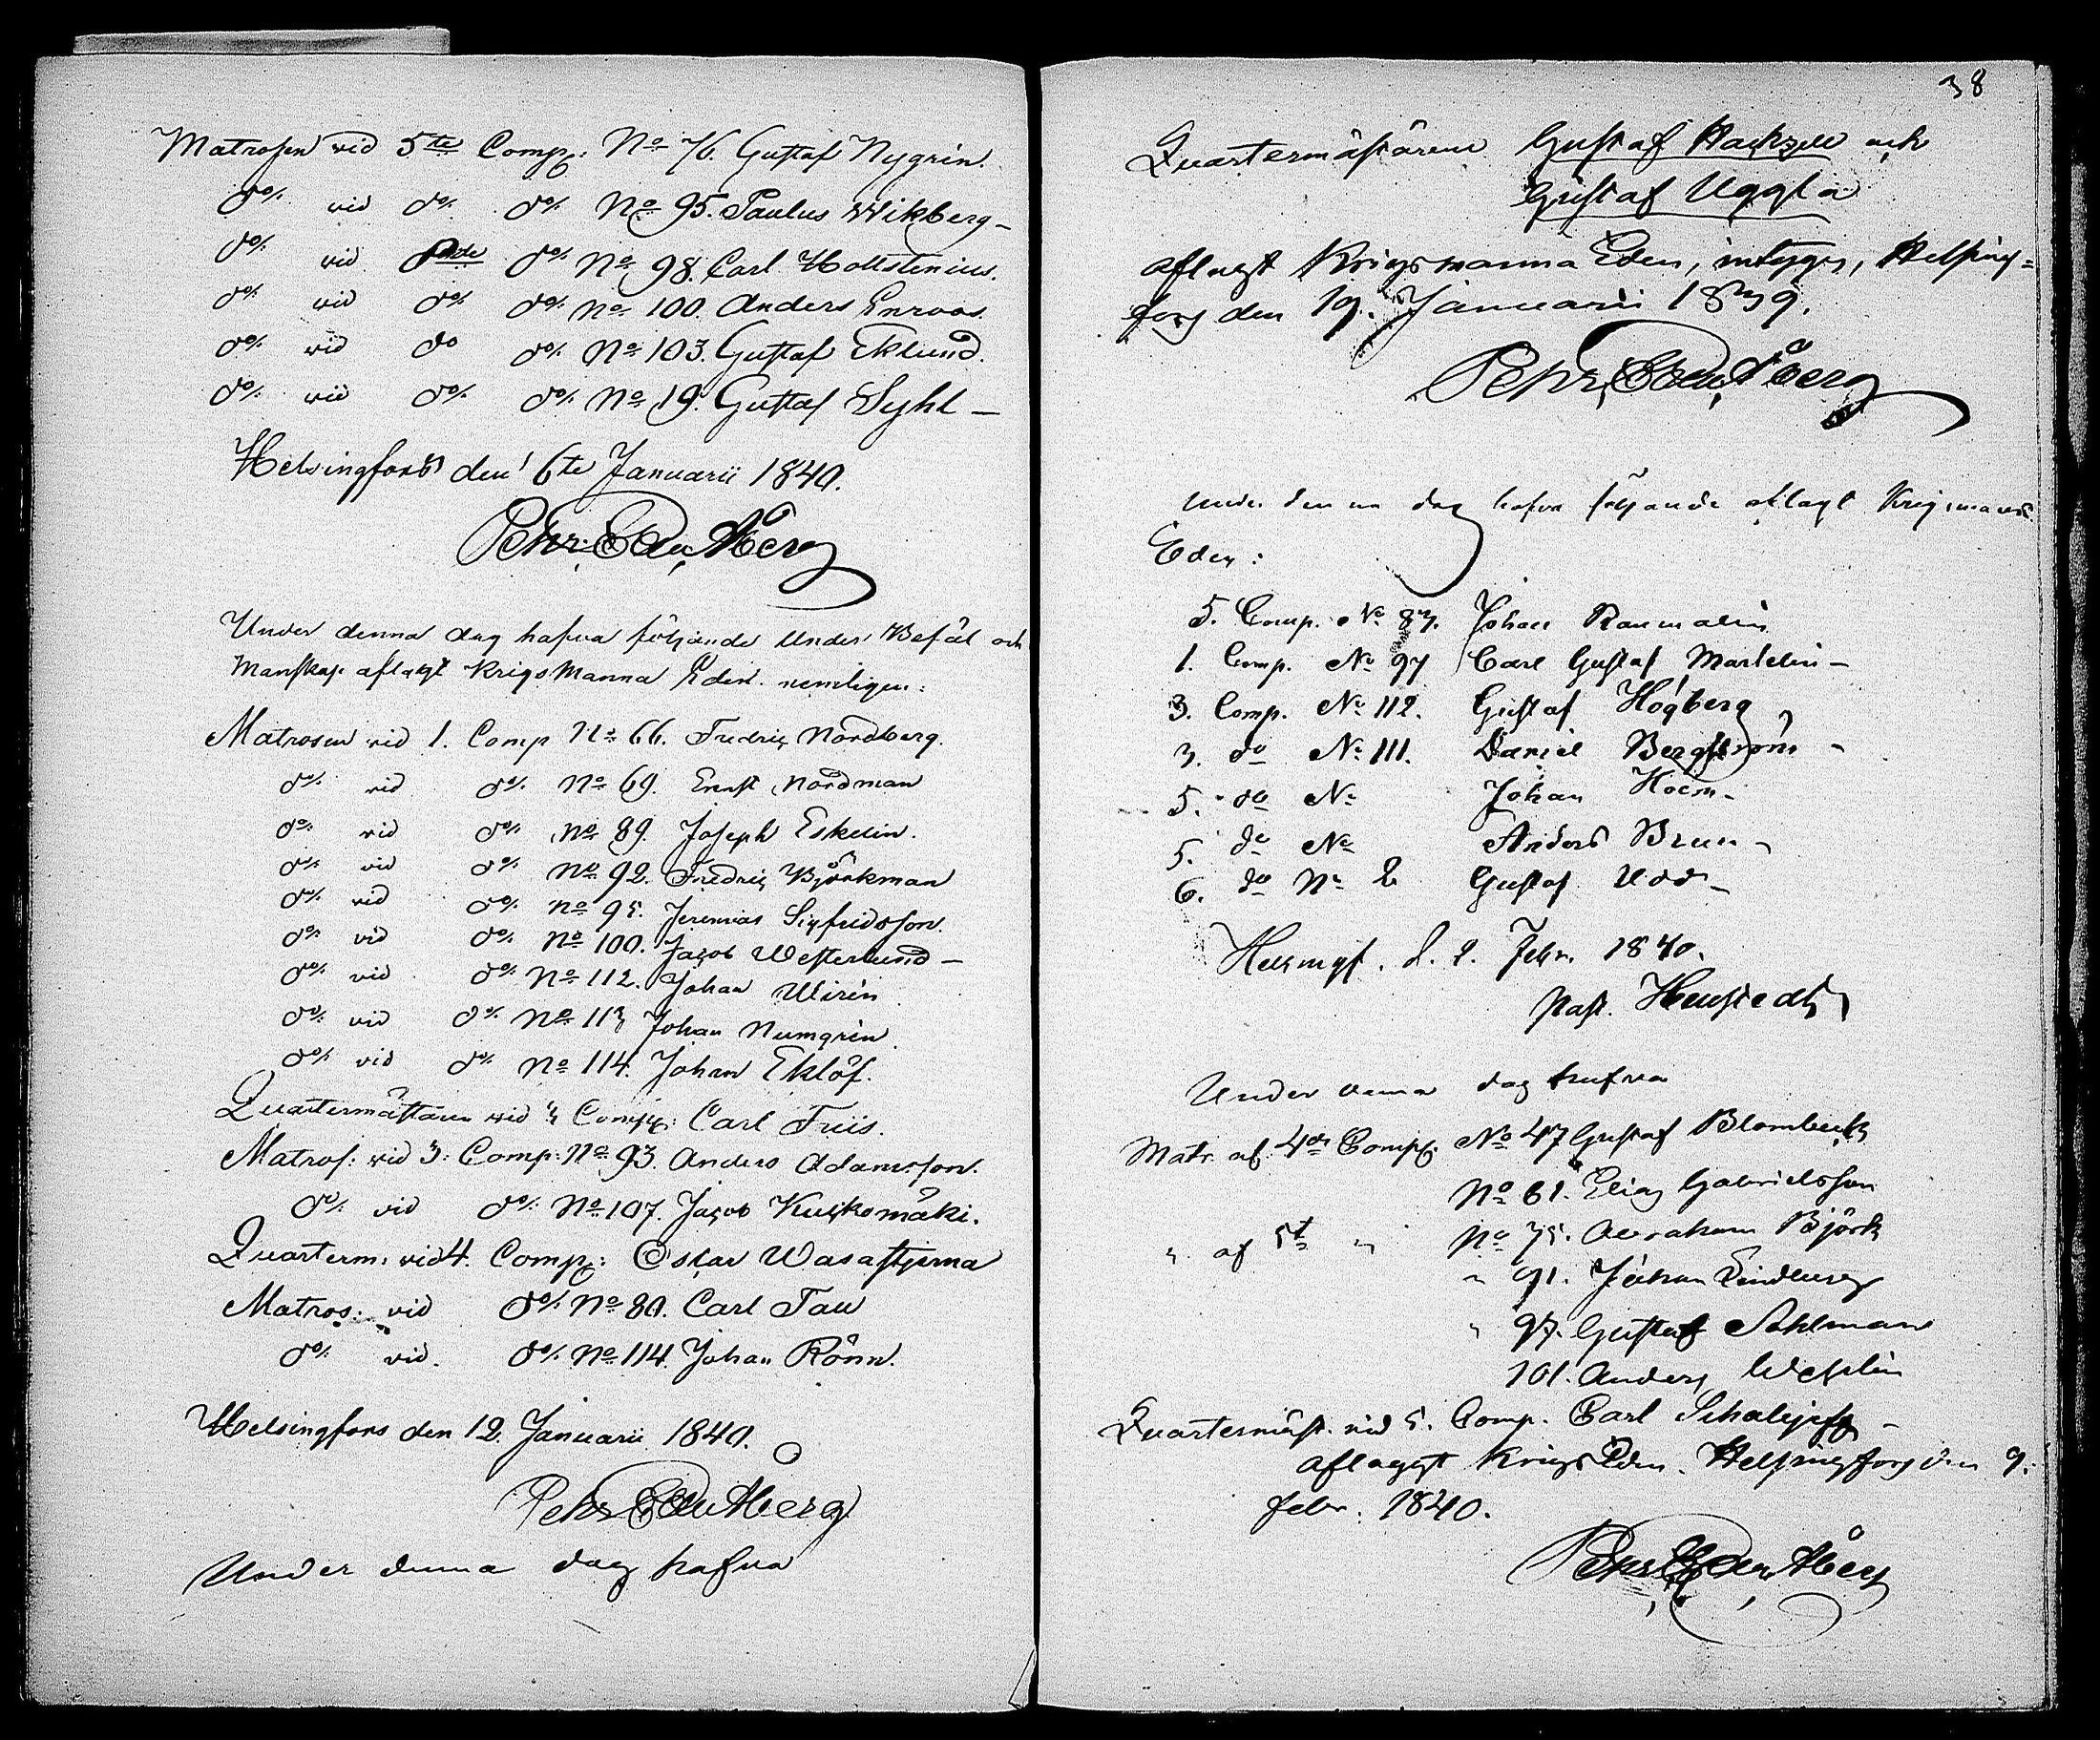 Matrosen vid 5te Comp: No 76. Gustaf Nygrén.
do/. vid do/. do/. No 95. Paulus Wikberg –
do/. vid do/. No 98. Carl Hollstenius.
do/. vid do/. do/. No 100. Anders Enroos.
do/. vid do do/. No 103. Gustaf Eklund.
do/. vid do/. do/. No 19. Gustaf Syhl –
Helsingfors den 6te Januarii 1840.
Pehr Edv Åberg
Under denna dag hafva följande Under Befäl och
Manskap aflagt Krigs Manna Eden. nemligen:
Matrosen vid 1. Comp No 66. Fredric Nordberg.
do/. vid do/. No 69. Ernst Nordman
do/. vid do/. No 89. Joseph Eskelin.
do/. vid do/. No 92. Fredric Björkman
do/. vid do/. No 95. Jeremias Sigfridsson.
do/. vid do/. No 100. Jacob Westerlund –
do/. vid do/. No 112. Johan Wirén
do/. vid do/. No 113 Johan Numgrén
do/. vid do/. No 114. Johan Eklöf.
Quartermästaren vid 3 Comp: Carl Friis.
Matros: vid 3: Comp: No 93. Anders Adamsson.
do/. vid do/. No 107. Jacob Kuskomäki.
Quarterm: vid 4. Comp: Oscar Wasastjerna
Matros: vid do/. No 80. Carl Tau
do/. vid. do/. No 114. Johan Rönn.
Helsingfors den 12. Januarii 1840.
Pehr Edv Åberg
Under denna dag hafva
38
Quartermästarene Gustaf Hackzell och
Gustaf Uggla
aflagt Krigsmanna Eden, intygas, Helsing=
fors den 19. Januarii 1839.
Pehr Edv Åberg
Under denna dag hafva följande aflagt Krigsmanna
Eden:
5. Comp. No 87. Johan Raumalin
1. Comp. No 97 Carl Gustaf Martelin –
3. Comp. No 112. Gustaf Högberg
3. do No 111. Daniel Bergström –
5. do No Johan Holm –
5. do No Anders Brun –
6. do No 2 Gustaf Udd –
Helsingf. d. 2. Febr. 1840.
Past.
Under denna dag hafva
Matr. af 4de Comp. No 47 Gustaf Blombeck
No 61. Elias Gabrielsson
" af 5te " No 75. Abraham Björk
" 91. Johan Lindberg
" 97. Gustaf Sahlman
101. Anders Wesslin
Quartermäst. vid 5. Comp. Carl
aflaggt KrigsEden. Helsingfors den 9.
febr. 1840.
Pehr Edv Åberg